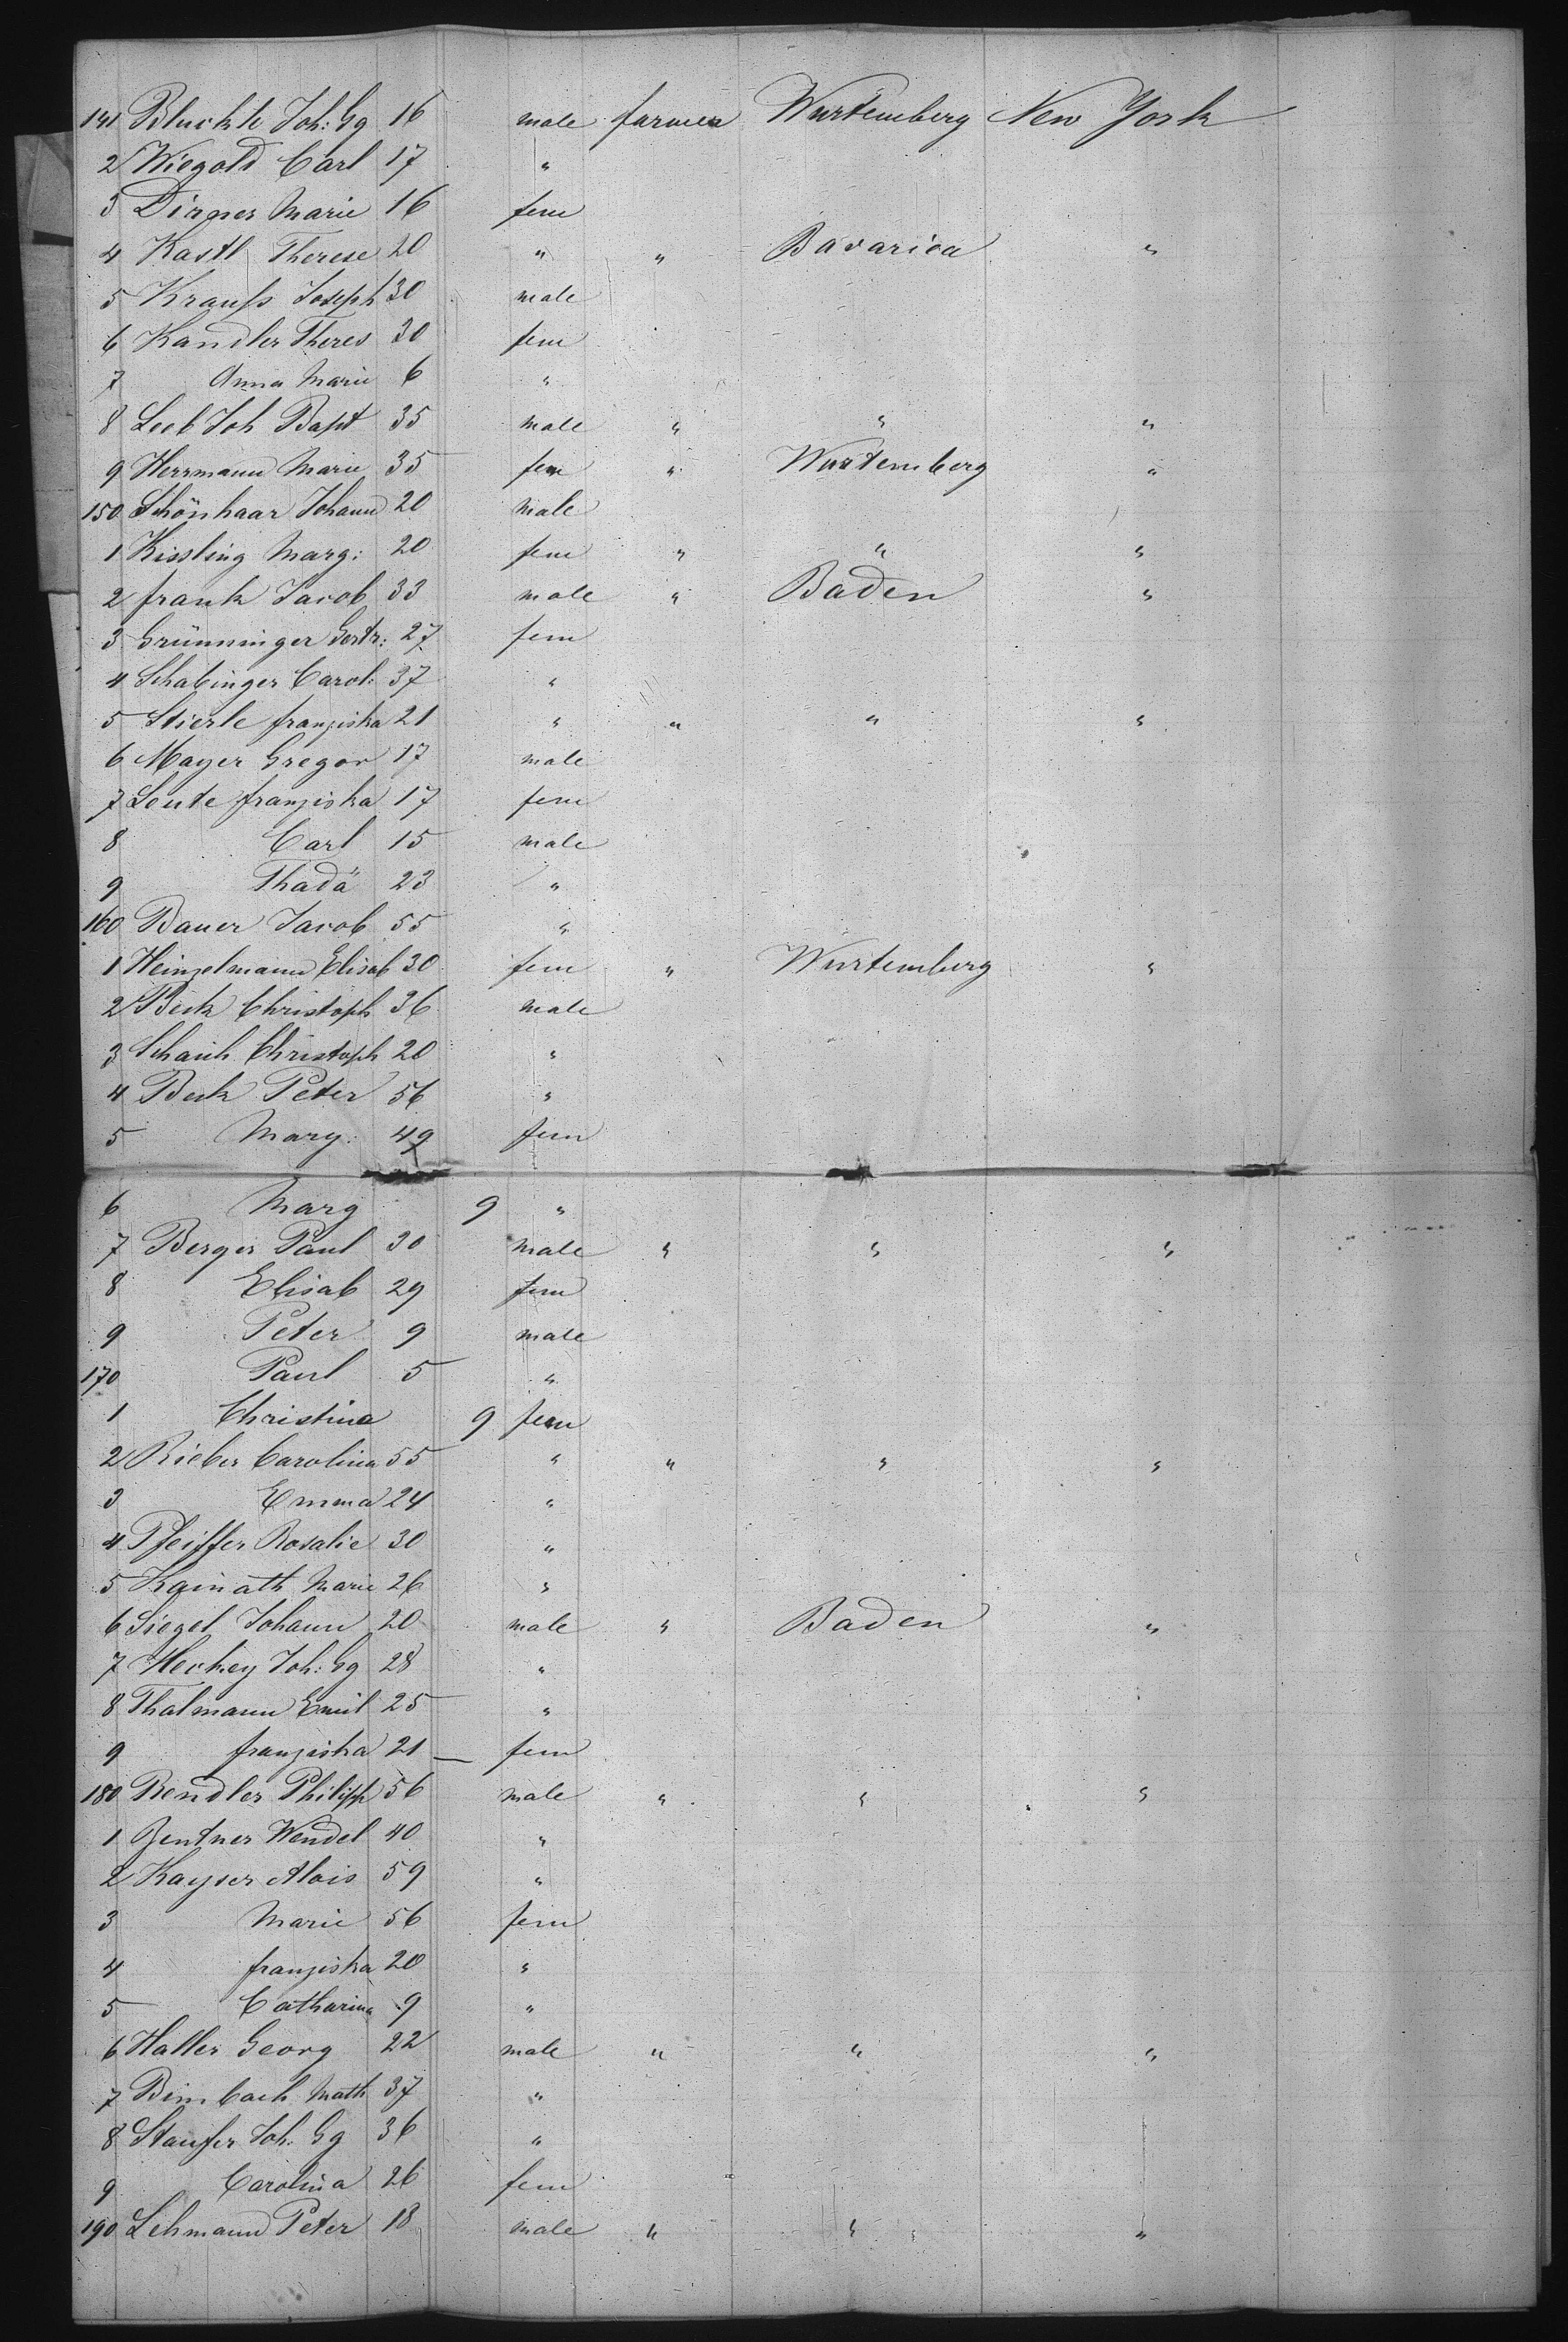 141 Bluckle Joh: Gg 16 male farmer Wurtemberg New York
2 Wiegold Carl 17 "
3 Dirner Marie 16 fem
4 Kastl Therese 20 " " Bavaria "
5 Krauss Joseph 30 male
6 Kandler Theres 30 fem
7 Anna Marie 6 "
8 Loeb Joh Bapt 35 male " " "
9 Herrmann Marie 35 fem " Wurtemberg "
150 Schönhaar Johann 20 male
1 Kissling Marg: 20 fem " " "
2 Frank Jacob 33 male " Baden "
3 Grünninger Gertr: 27 fem
4 Schabinger Carol: 37 "
5 Stierle Franziska 21 " " " "
6 Mayer Gregor 17 male
7 Leute Franziska 17 fem
8 Carl 15 male
9 Thadä 23 "
160 Bauer Jacob 55 "
1 Heinzelmann Elisab 30 fem " Wurtemberg "
2 Beck Christoph 36 male
3 Schaich Christoph 20 "
4 Beck Peter 56 "
5 Marg: 49 fem
6 Marg 9 "
7 Berger Paul 30 male " " "
8 Elisab 29 fem
9 Peter 9 male
170 Paul 5 "
1 Christina 9 fem
2 Rieber Carolina 55 " " " "
3 Emma 24 "
4 Pfeiffer Rosalie 30 "
5 Kainath Marie 26 "
6 Siegel Johann 20 male " Baden "
7 Heckey Joh: Gg 28 "
8 Thalmann Emil 25 "
9 Franziska 21 fem
180 Bendler Philipp 56 male " " "
1 Zentner Wendel 40 "
2 Kayser Alois 59 "
3 Marie 56 fem
4 Franziska 20 "
5 Catharina 9 "
6 Haller Georg 22 male " " "
7 Bimbach Math 37 "
8 Staufer Joh. Gg 36 "
9 Carolina 26 fem
190 Lehmann Peter 18 male " " "